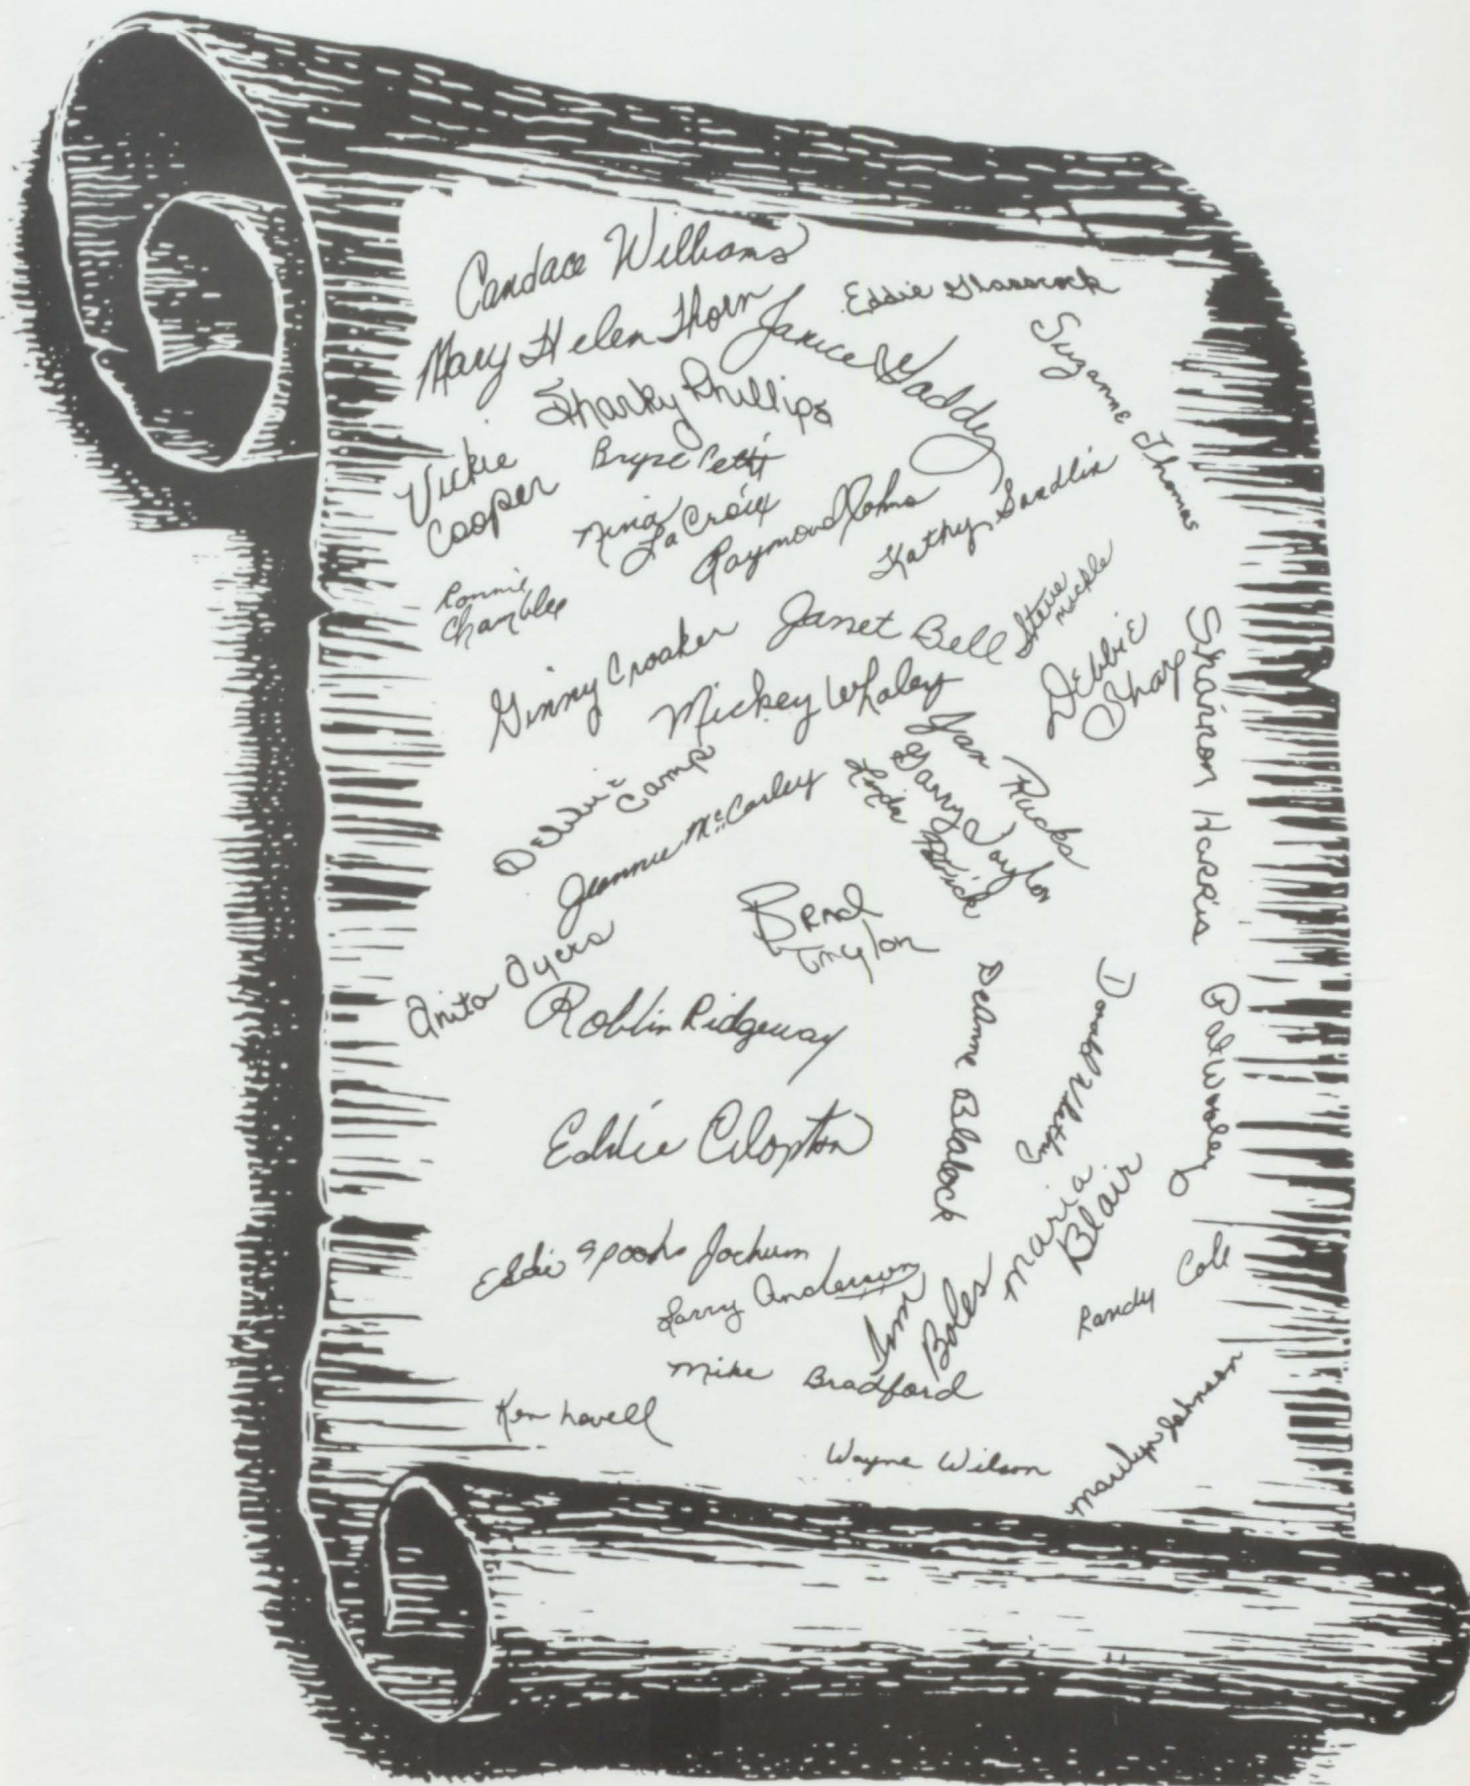 Candace Williams
Eddie Glasscock
Mary Helen Thorn
Janice Gaddy
Suzanne Thomas
Sharky Phillips
Vickie
Cooper
Bryce Pettit
Nina
LaCroix
Raymond Johns
Kathy Sandlin
Ronnie
Chamblee
Ginny Croaker
Janet Bell
Steve
Mickle
Debbie
Sharp
Shannon Harris
Mickey Whaley
Jan Rucks
Garry Taylor
Linda
Debbie
Camp
Jeannie McCarley
Brad
Taylor
Anita Ayers
Robbin Ridgeway
DeAnne Blalock
Donna
Pat Wooley
Eddie Clopton
Maria
Blair
Eddie Spooks Jochum
Larry Anderson
Jim
Boles
Randy Cole
Mike Bradford
Ken Lovell
Wayne Wilson
Marilyn Johnson